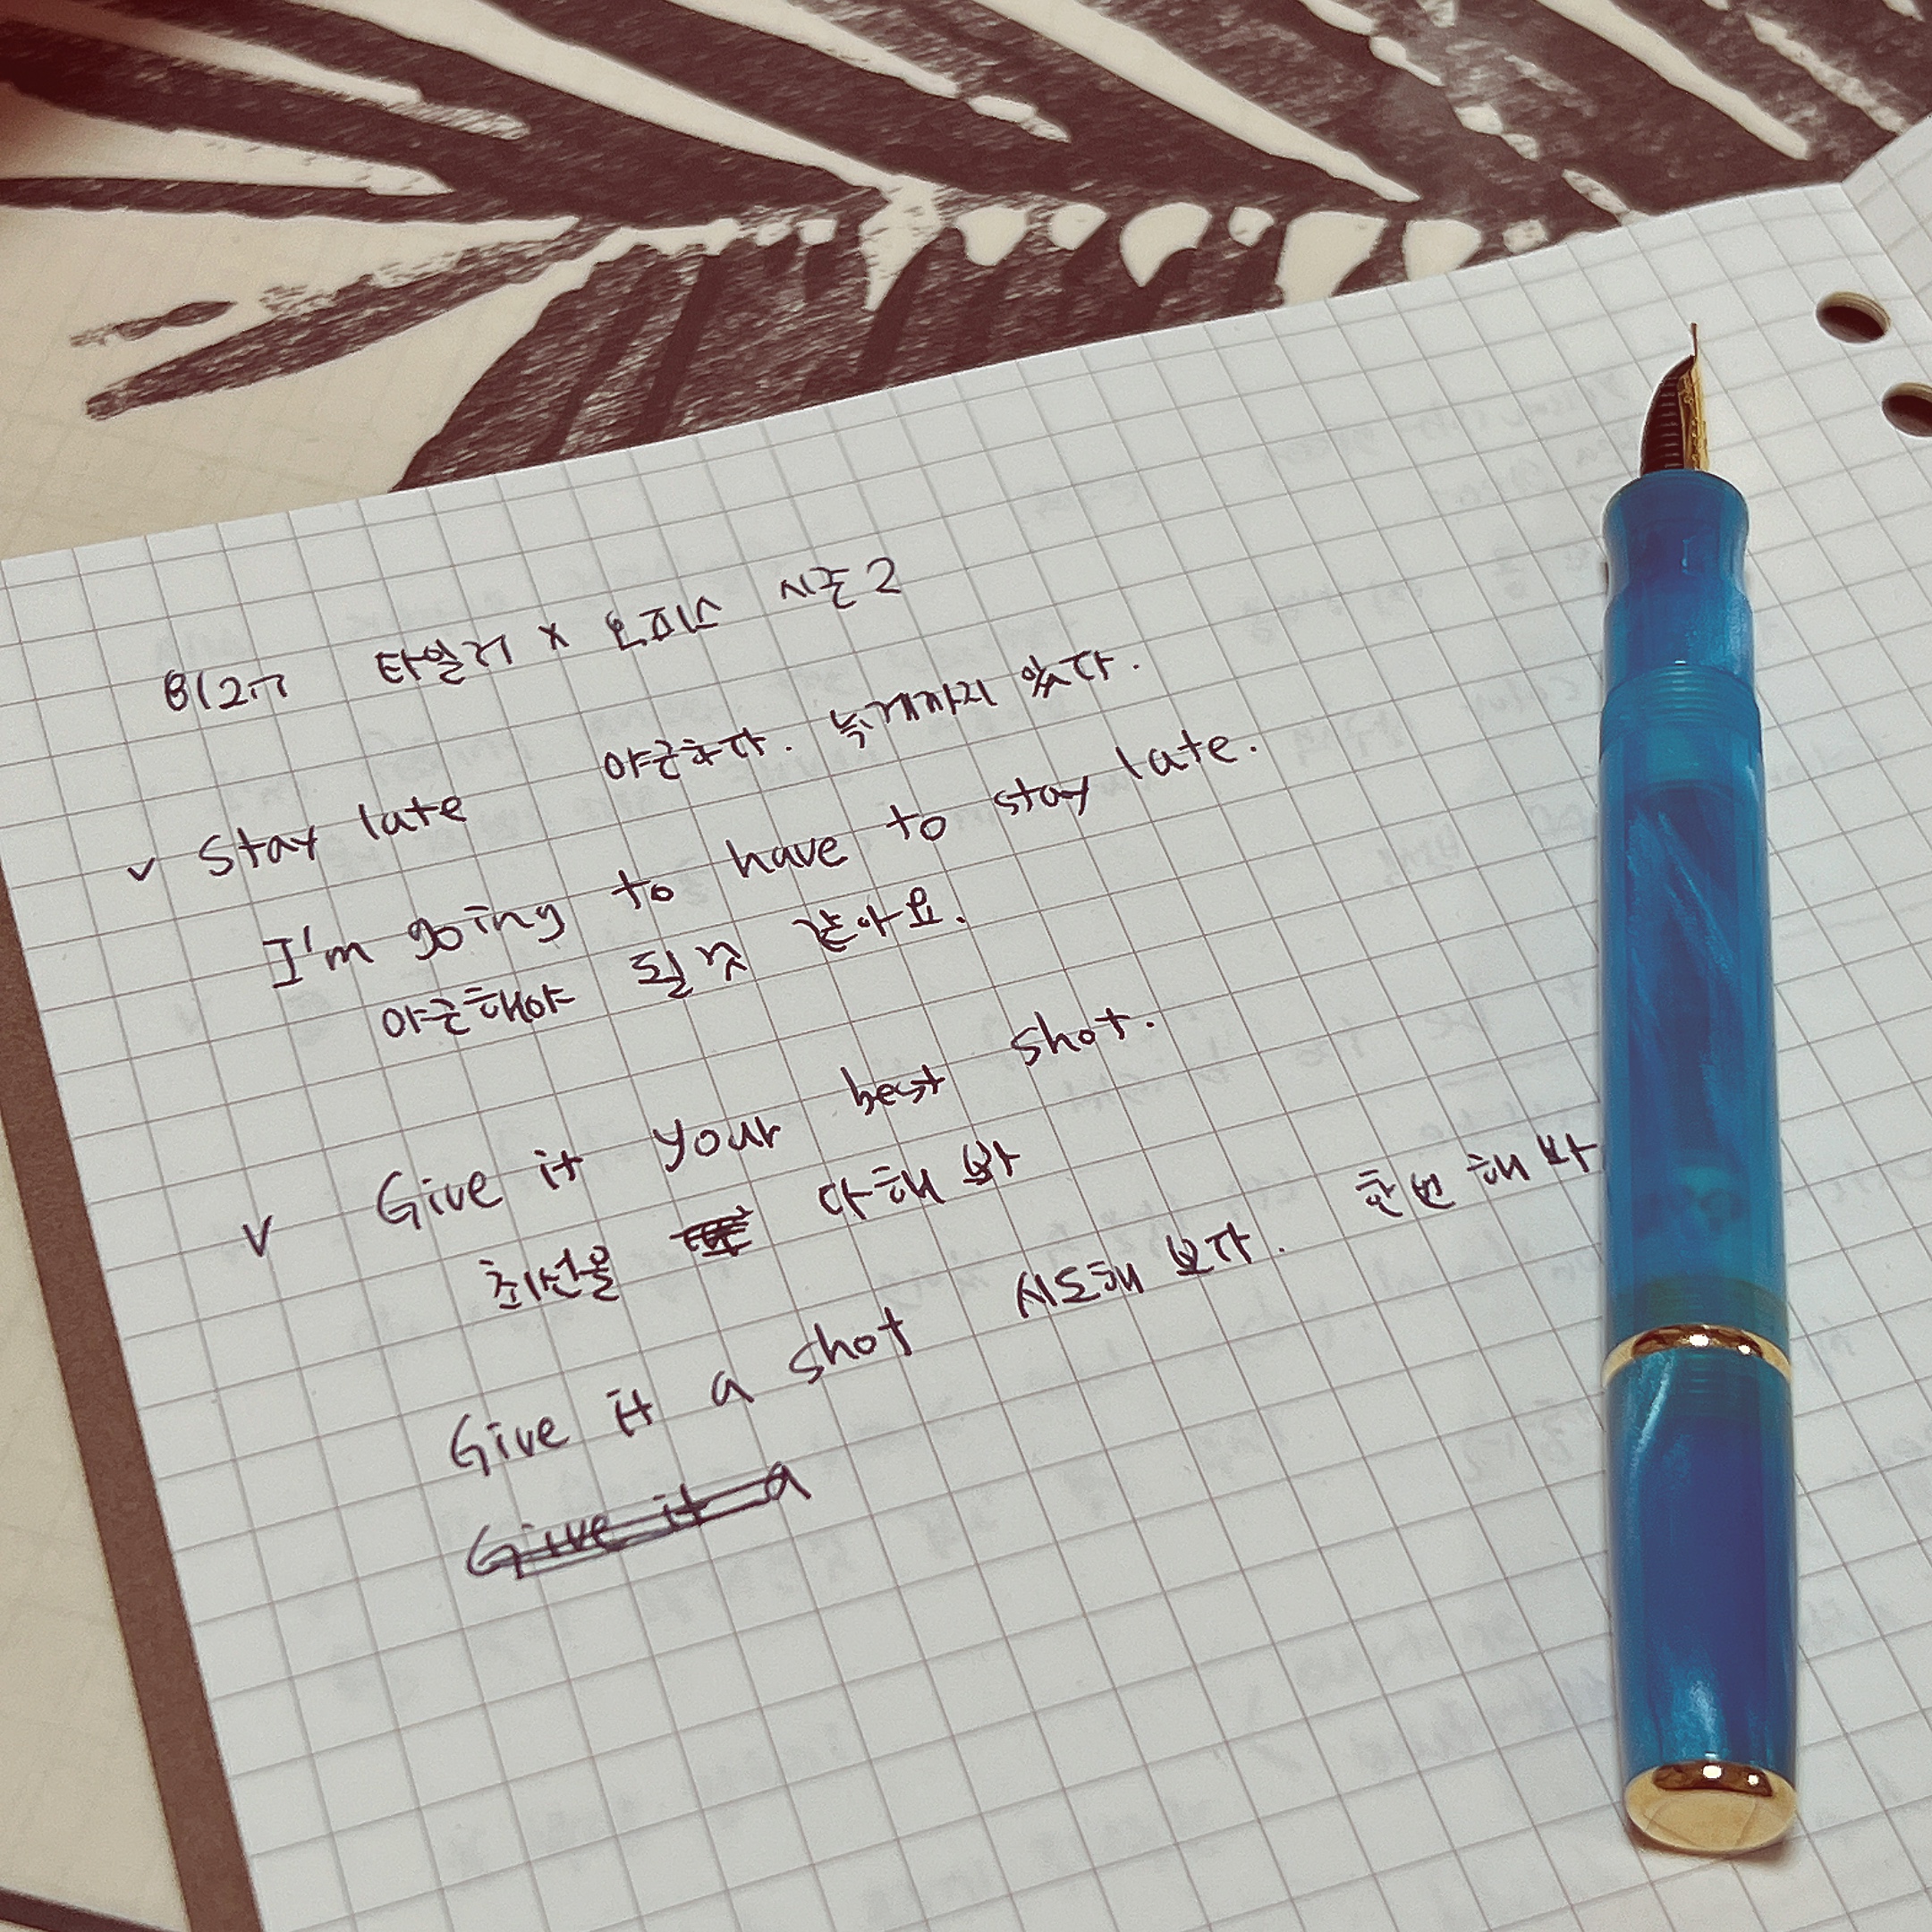 812ㅠ 타일러 x 오피스 시즌2
✓ stay late 야근하다. 늦게까지 있다.
I'm going to have to stay late.
야근해야 될 것 같아요.
✓ Give it your best shot.
최선을 다해 봐
Give it a shot 시도해 보다. 한번 해 봐
Give it a